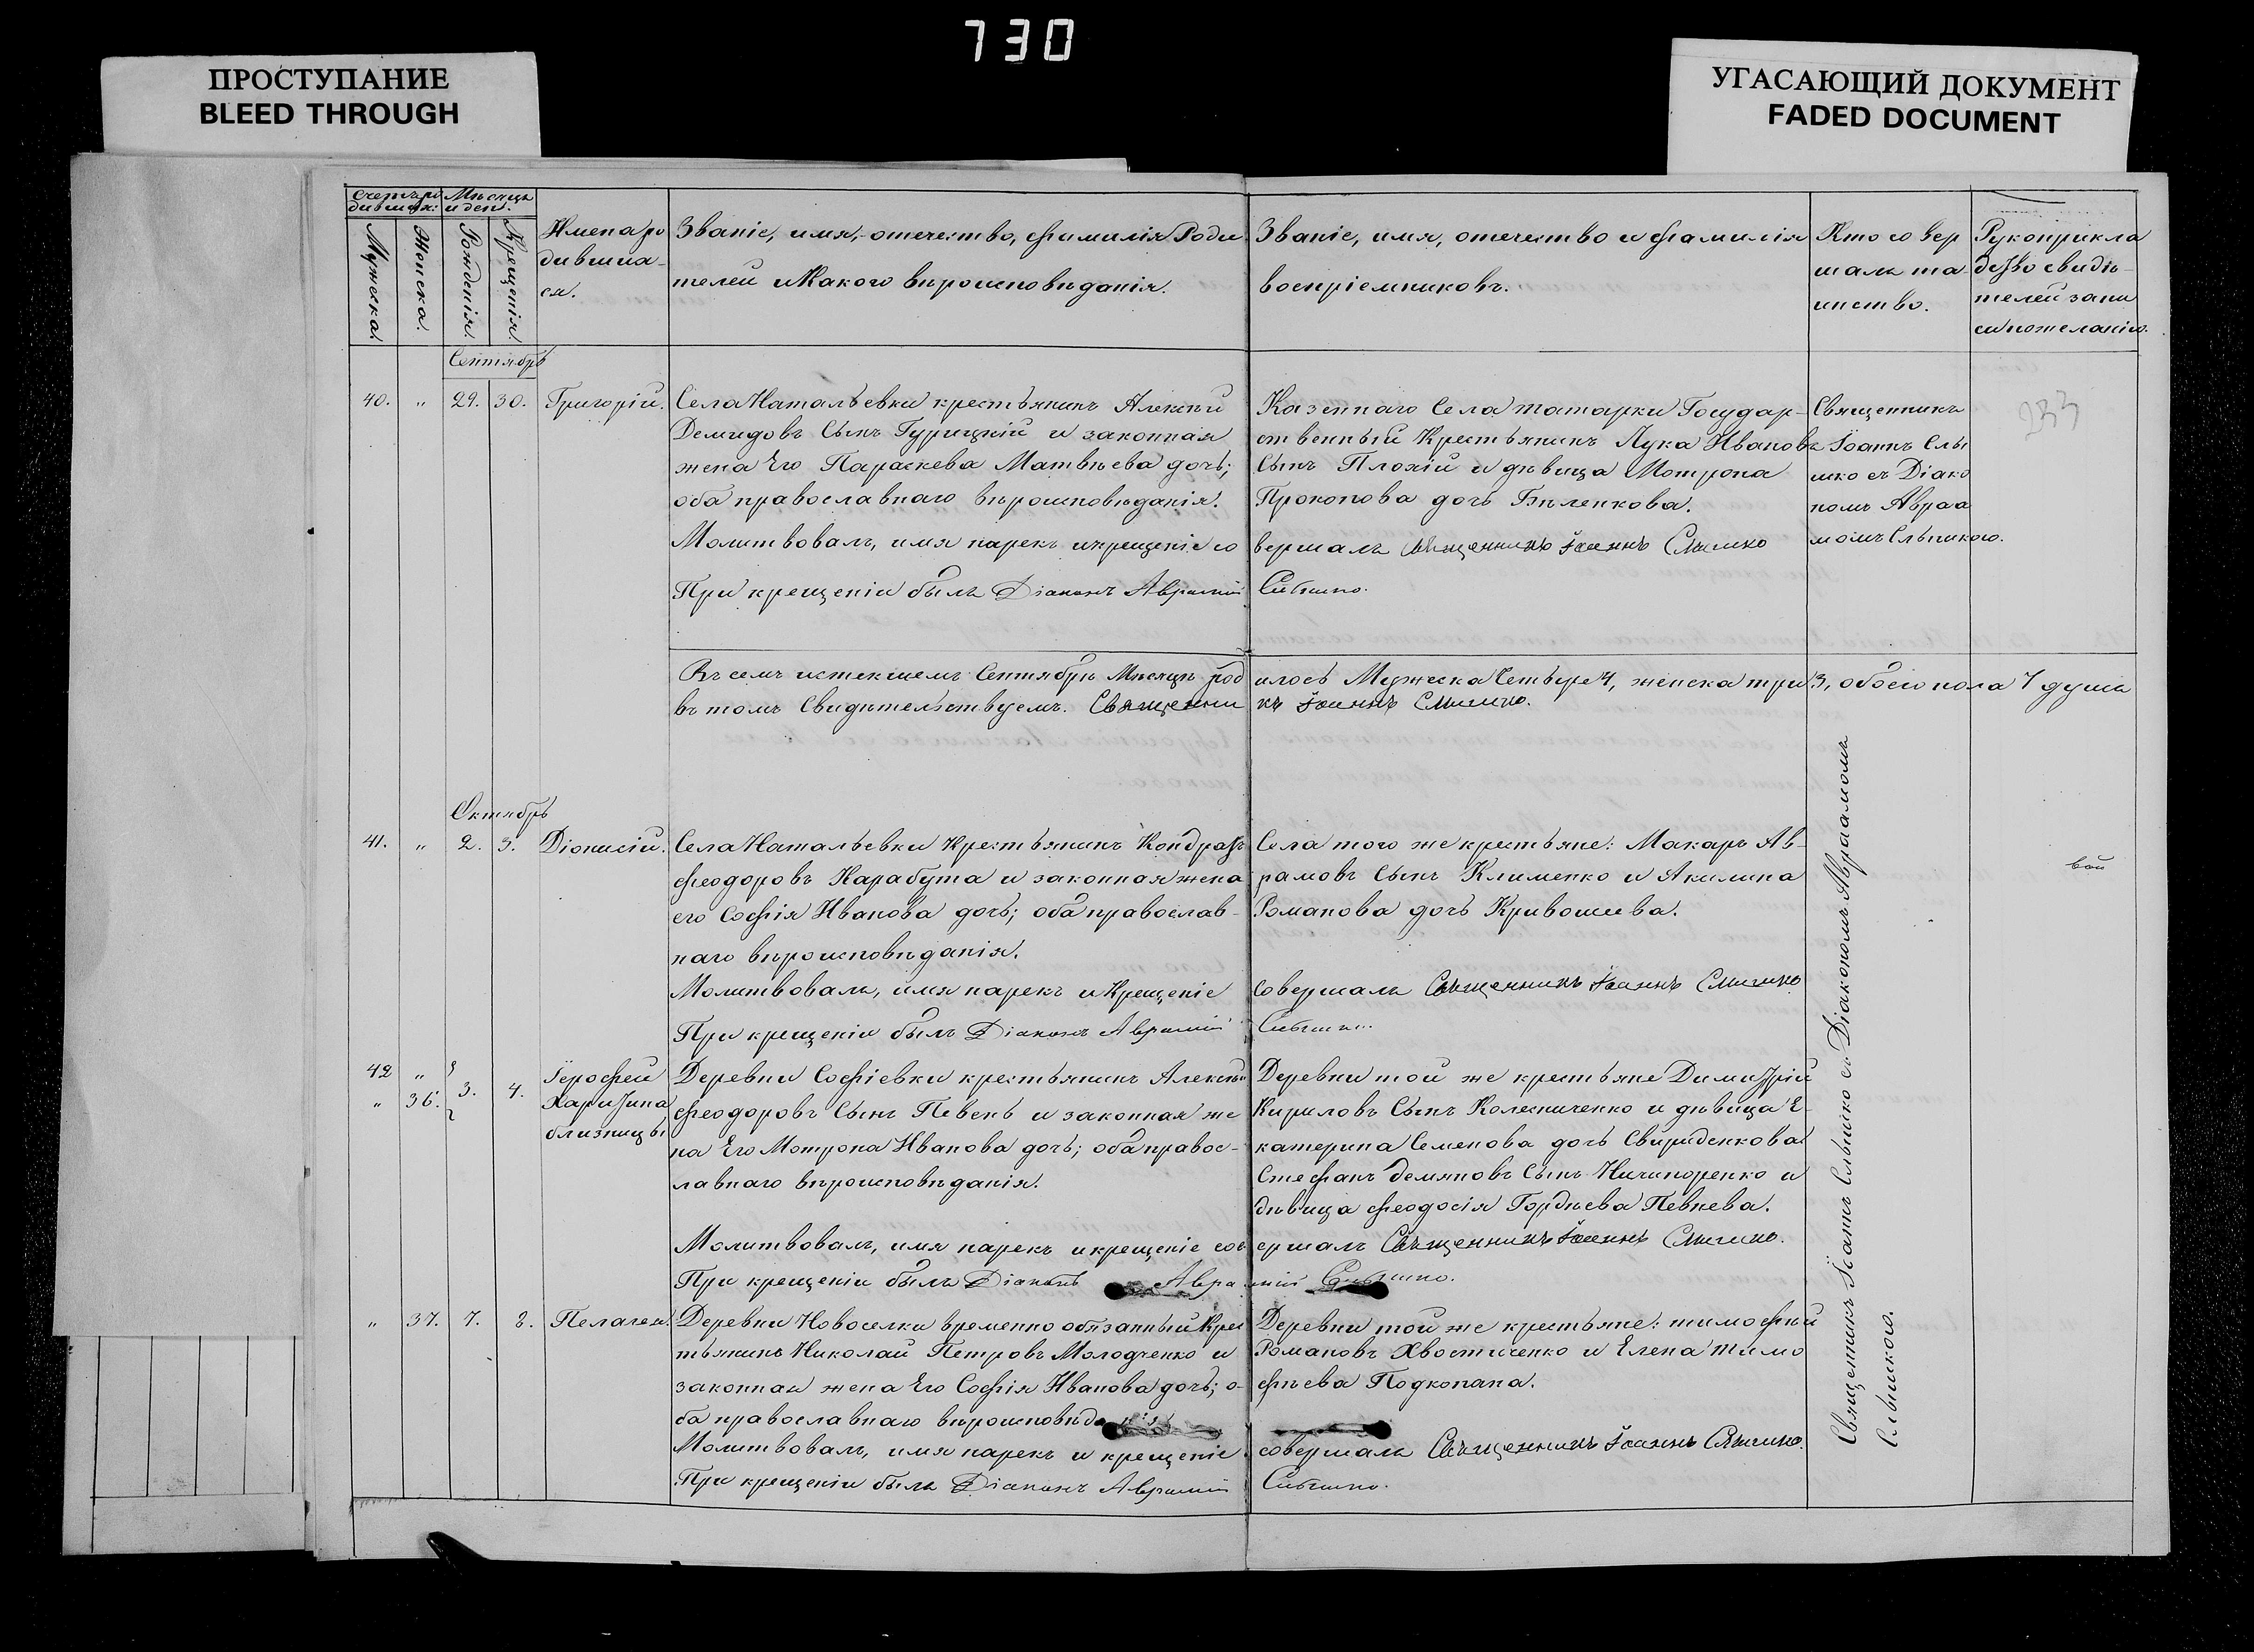 730
ПРОСТУПАНИЕ
BLEED THROUGH
УГАСАЮЩИЙ ДОКУМЕНТ
FADED DOCUMENT
Счетъ ро
дивших:
Мѣсяцъ
и ден.
Мужеска.
Женска.
Рожденія.
Крещенія.
Имена ро
дивша-
ся.
Званіе, имя, отечество, фамилія Роди
телей и Какого вѣроисповѣданія.
Званіе, имя, отечество и фамилія
воспріемниковъ.
Кто совер
шалъ та-
инство.
Рукоприкла
дство свидѣ-
телей запи
си по желанію.
Сентябрь
40. " 29. 30. Григорій.
Села Натальевки крестьянинъ Алексѣй
Демидовъ Сынъ Гурицкій и законная
жена Его Параскева Матвѣева дочь;
оба православнаго вѣроисповѣданія.
Молитвовалъ, имя нарекъ и крещеніе со
При крещеніи былъ Діаконъ Аврамій
Казеннаго Села татарки Государ-
ственный Крестьянинъ Лука Ивановъ
Сынъ Плохій и дѣвица Мотрона
Прокопова дочь Бѣленкова.
вершалъ Священникъ Іоаннъ Слышко
Слышко.
Священникъ
Іоаннъ Слы
шко съ Діако
номъ Авраа
момъ Слышкою.
233
Въ семъ истекшемъ Сентябрѣ Мѣсяцѣ род
илось Мужеска Четыре 4, женска три 3, обоего пола 7 душъ
въ томъ Свидѣтельствуемъ. Священни
къ Іоаннъ Слышко.
Октябрь
41. " 2. 3. Діонисій.
Села Натальевки Крестьянинъ Кондратъ
Феодоровъ Карабута и законная жена
его Софія Иванова дочь; оба православ-
наго вѣроисповѣданія.
Молитвовалъ, имя нарекъ и Крещеніе
При крещеніи былъ Діаконъ Аврамій
Села того же крестьяне: Макаръ Ав-
рамовъ Сынъ Клименко и Акилина
Романова дочь Кривошеева.
Совершалъ Священникъ Іоаннъ Слышко
вой
42 "
" 36. 3. 4.
Іерофей
Харитина
близнецы
Деревни Софіевки крестьянинъ Алексѣй
Феодоровъ Сынъ Певень и законная же
на Его Мотрона Иванова дочь; оба правос-
лавнаго вѣроисповѣданія.
Молитвовалъ, имя нарекъ и крещеніе сов
При крещеніи былъ Діаконъ Авра
Деревни той же крестьяне Димитрій
Кириловъ Сынъ Колесниченко и дѣвица Е-
катерина Семенова дочь Свириденкова
Стефанъ Демяновъ Сынъ Ничипоренко и
дѣвица Феодосія Гордѣева Певнева.
ершалъ Священникъ Іоаннъ Слышко.
мій Слышко.
" 37. 7. 8. Пелагея.
Деревни Новоселки временно обязанный Крес
тьянинъ Николай Петровъ Молодченко и
законная жена Его Софія Иванова дочь; о-
ба православнаго вѣроисповѣданія
Молитвовалъ, имя нарекъ и крещеніе
При крещеніи былъ Діаконъ Аврамій
Деревни той же крестьяне: тимофѣй
Романовъ Хвостиченко и Елена тимо
фѣева Подкопана.
совершалъ Священникъ Іоаннъ Слышко.
Слышко.
Священникъ Іоаннъ Слышко съ Діакономъ Авраамомъ
Слышкого.